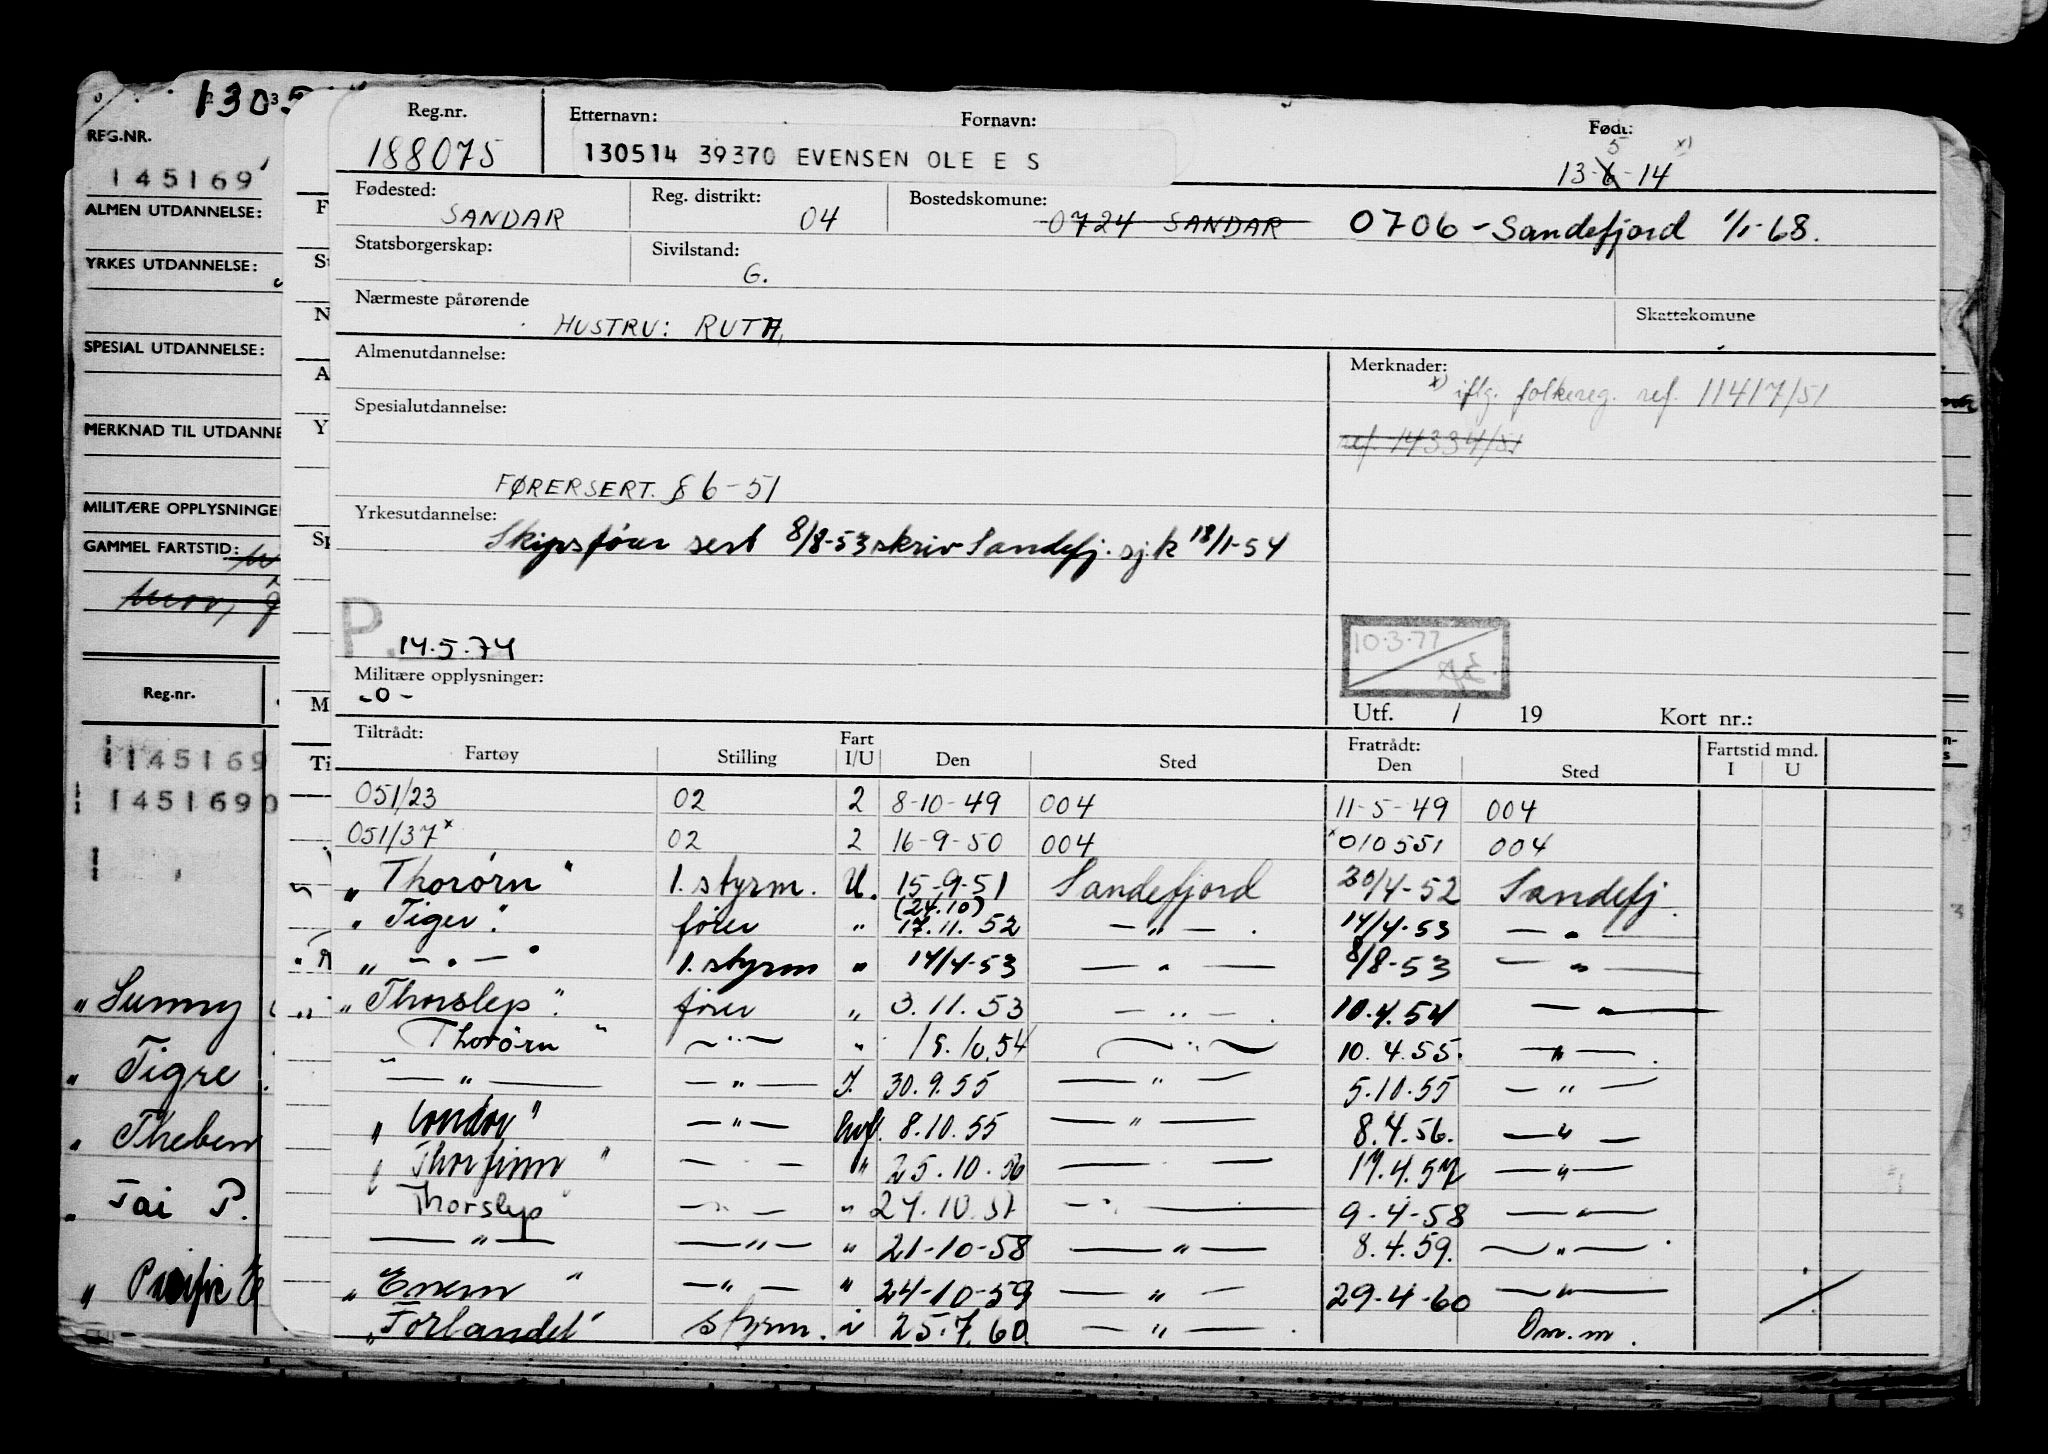 REG.NR.
145169
ALMEN UTDANNELSE:
YRKES UTDANNELSE:
SPESIAL UTDANNELSE:
MERKNAD TIL UTDANNE
MILITÆRE OPPLYSNINGE
GAMMEL FARTSTID:
Reg.nr.
145169
145169
"Sunny
" Tigre
" Theben
" Tai P.
" Pacific
Reg.nr. Etternavn: Fornavn: Født:
188075 130514 39370 EVENSEN OLE E S 13-6-14 5 x)
Fødested: Reg. distrikt: Bostedskomune:
SANDAR 04 0724 SANDAR 0706 - Sandefjord 1/1-68.
Statsborgerskap: Sivilstand:
G.
Nærmeste pårørende Skattekomune
HUSTRU: RUTH,
Almenutdannelse: Merknader:
x) iflg. folkereg. ref. 11417/51
Spesialutdannelse:
ref. 14334/51
FØRERSERT. § 6-51
Yrkesutdannelse:
Skipsfører sert 8/8-53 skriv Sandefj. sj.k 18/1-54
P. 14.5.74
10.3.77
Militære opplysninger:
-0-
Utf. / 19 Kort nr.:
Tiltrådt: Fart Fratrådt: Fartstid mnd.
Fartøy Stilling I/U Den Sted Den Sted I U
051/23 02 2 8-10-49 004 11-5-49 004
051/37x 02 2 16-9-50 004 x010551 004
" Thorørn " 1. styrm. U. 15-9-51 Sandefjord 30/4-52 Sandefj.
(24.10)
" Tiger". fører " 17.11.52 — " — . 14/4-53 — " —
" — " — " 1. styrm " 14/4-53 — " — 8/8-53 — " —
"Thorslep". fører " 3.11.53 — " — . 10.4.54 — " —
" Thorørn " — " — " 15.10.54 — " — 10.4.55. — " — .
— " — — " — I. 30.9.55 — " — 5.10.55 — " —
" Condor" — " — hvf. 8.10.55 — " — 8.4.56. — " —
" Thorfinn " — " — " 25.10.56 — " — 17.4.57 — " —
Thorslep — " — " 24.10.57 — " — 9-4-58 — " —
— " — — " — " 21-10-58 — " — 8.4.59. — " — .
" Enern " — " — " 24-10-59 — " — 29-4-60 — " —
"Forlandet" styrm. i 25.7.60 — " — . Om.m.